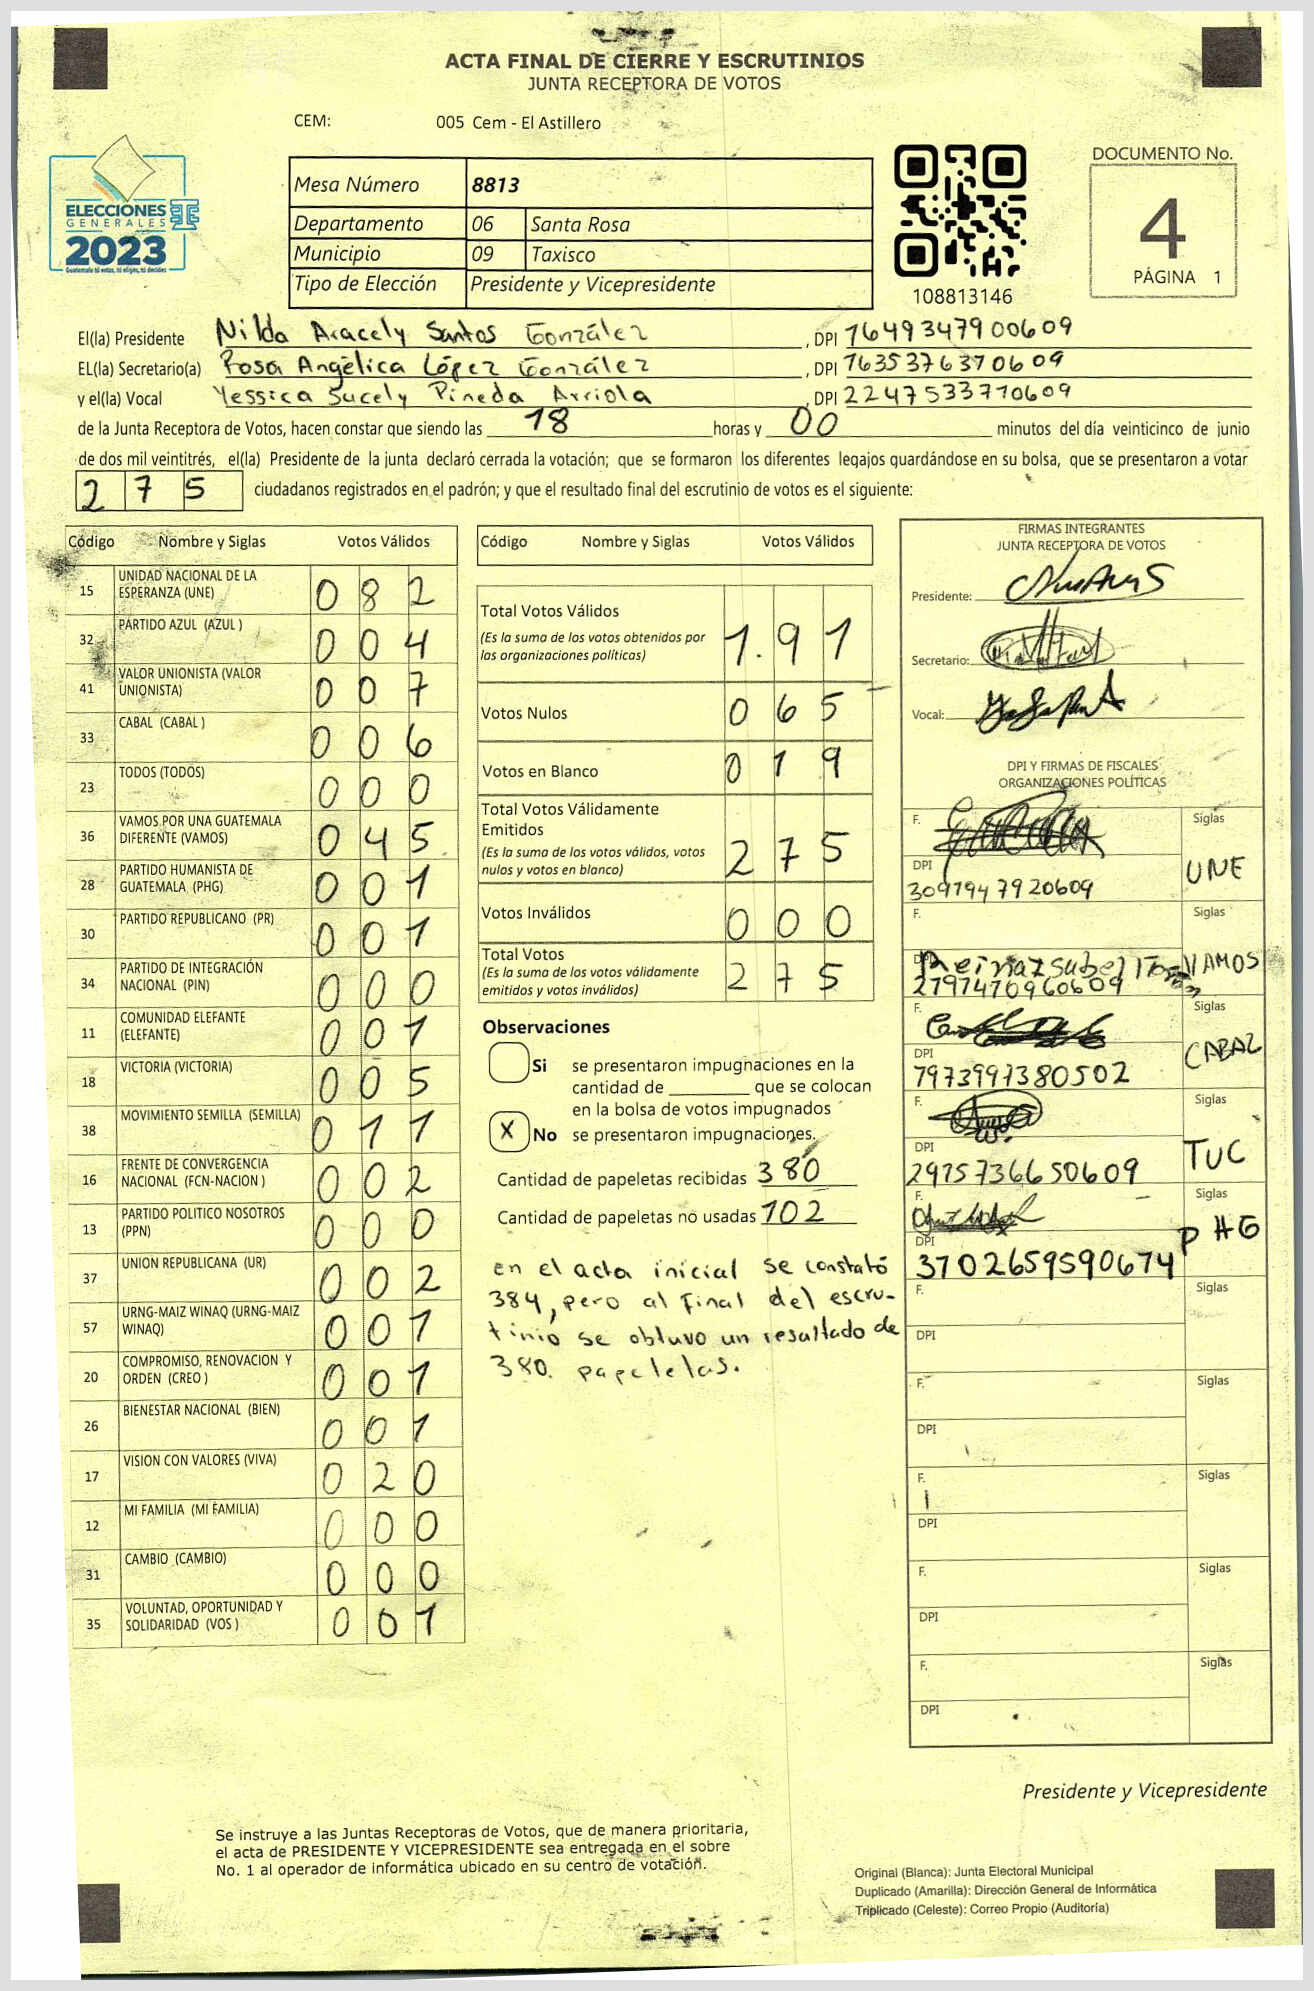 ACTA FINAL DE CIERRE Y ESCRUTINIOS
JUNTA RECEPTORA DE VOTOS
CEM: 005 Cem - El Astillero
ELECCIONES
GENERALES
2023
Guatemala tú votas, tú eliges, tú decides
Mesa Número 8813
Departamento 06 Santa Rosa
Municipio 09 Taxisco
Tipo de Elección Presidente y Vicepresidente
108813146
DOCUMENTO No.
4
PÁGINA 1
El(la) Presidente Nilda Aracely Santos González, DPI 1649347900609
EL(la) Secretario(a) Rosa Angèlica López González, DPI 1635376370609
y el(la) Vocal Yessica Sucely Pineda Arriola, DPI 2247533710609
de la Junta Receptora de Votos, hacen constar que siendo las 18 horas y 00 minutos del día veinticinco de junio
de dos mil veintitrés, el(la) Presidente de la junta declaró cerrada la votación; que se formaron los diferentes legajos guardándose en su bolsa, que se presentaron a votar
275 ciudadanos registrados en el padrón; y que el resultado final del escrutinio de votos es el siguiente:
Código Nombre y Siglas Votos Válidos
15 UNIDAD NACIONAL DE LA ESPERANZA (UNE) 082
32 PARTIDO AZUL (AZUL ) 004
41 VALOR UNIONISTA (VALOR UNIONISTA) 007
33 CABAL (CABAL ) 006
23 TODOS (TODOS) 000
36 VAMOS POR UNA GUATEMALA DIFERENTE (VAMOS) 045
28 PARTIDO HUMANISTA DE GUATEMALA (PHG) 001
30 PARTIDO REPUBLICANO (PR) 001
34 PARTIDO DE INTEGRACIÓN NACIONAL (PIN) 000
11 COMUNIDAD ELEFANTE (ELEFANTE) 001
18 VICTORIA (VICTORIA) 005
38 MOVIMIENTO SEMILLA (SEMILLA) 011
16 FRENTE DE CONVERGENCIA NACIONAL (FCN-NACION ) 002
13 PARTIDO POLITICO NOSOTROS (PPN) 000
37 UNION REPUBLICANA (UR) 002
57 URNG-MAIZ WINAQ (URNG-MAIZ WINAQ) 001
20 COMPROMISO, RENOVACION Y ORDEN (CREO ) 001
26 BIENESTAR NACIONAL (BIEN) 001
17 VISION CON VALORES (VIVA) 020
12 MI FAMILIA (MI FAMILIA) 000
31 CAMBIO (CAMBIO) 000
35 VOLUNTAD, OPORTUNIDAD Y SOLIDARIDAD (VOS ) 001
Código Nombre y Siglas Votos Válidos
Total Votos Válidos 1.91
(Es la suma de los votos obtenidos por
las organizaciones políticas)
Votos Nulos 065
Votos en Blanco 019
Total Votos Válidamente
Emitidos 275
(Es la suma de los votos válidos, votos
nulos y votos en blanco)
Votos Inválidos 000
Total Votos 275
(Es la suma de los votos válidamente
emitidos y votos inválidos)
Observaciones
Si se presentaron impugnaciones en la
cantidad de ________ que se colocan
en la bolsa de votos impugnados
X No se presentaron impugnaciones.
Cantidad de papeletas recibidas 380
Cantidad de papeletas no usadas 102
en el acta inicial se constató
384, pero al final del escru-
tinio se obtuvo un resultado de
380. papeletas.
FIRMAS INTEGRANTES
JUNTA RECEPTORA DE VOTOS
Presidente:
Secretario:
Vocal:
DPI Y FIRMAS DE FISCALES
ORGANIZACIONES POLÍTICAS
F. Siglas
DPI UNE
3091947920609
F. Siglas
DPI VAMOS
2797470960609
F. Siglas
DPI CABAL
7973997380502
F. Siglas
DPI TUC
2975736650609
F. Siglas
DPI PHG
3702659590674
F. Siglas
DPI
F. Siglas
DPI
F. Siglas
DPI
F. Siglas
DPI
F. Siglas
DPI
Presidente y Vicepresidente
Se instruye a las Juntas Receptoras de Votos, que de manera prioritaria,
el acta de PRESIDENTE Y VICEPRESIDENTE sea entregada en el sobre
No. 1 al operador de informática ubicado en su centro de votación.
Original (Blanca): Junta Electoral Municipal
Duplicado (Amarilla): Dirección General de Informática
Triplicado (Celeste): Correo Propio (Auditoría)